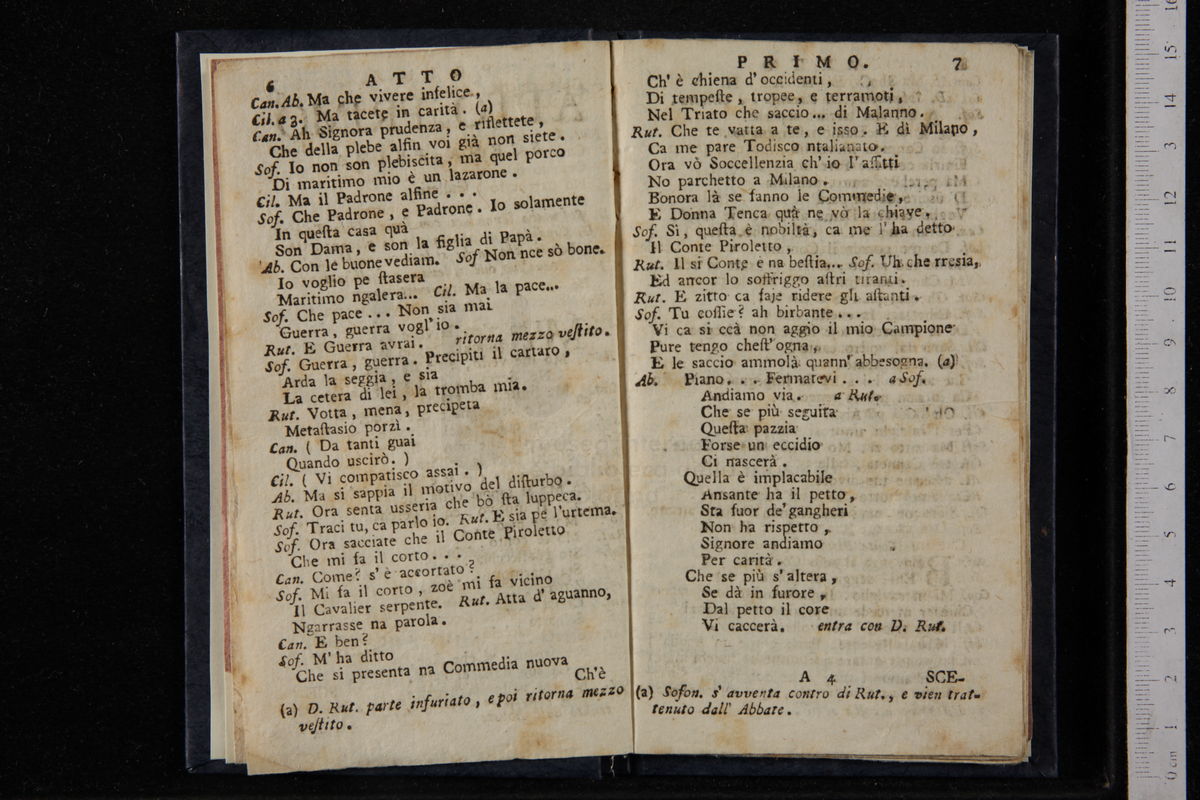 6 ATTO
Can. Ab. Ma che vivere infelice,
Cil. a 3. Ma tacete in carità. (a)
Can. Ah Signora prudenza, e riflettete,
Che della plebe alfin voi già non siete.
Sof. Io non son plebiscita, ma quel porco
Di maritimo mio è un lazarone.
Cil. Ma il Padrone alfine . . .
Sof. Che Padrone, e Padrone. Io solamente
In questa casa quà
Son Dama, e son la figlia di Papà.
Ab. Con le buone vediam. Sof Non nce sò bone.
Io voglio pe stasera
Maritimo ngalera... Cil. Ma la pace...
Sof. Che pace . . . Non sia mai
Guerra, guerra vogl'io.
Rut. E Guerra avrai. ritorna mezzo vestito.
Sof. Guerra, guerra. Precipiti il cartaro,
Arda la seggia, e sia
La cetera di lei, la tromba mia.
Rut. Votta, mena, precipeta
Metastasio porzì.
Can. ( Da tanti guai
Quando uscirò. )
Cil. ( Vi compatisco assai. )
Ab. Ma si sappia il motivo del disturbo.
Rut. Ora senta usseria che bò sta luppeca.
Sof. Traci tu, ca parlo io. Rut. E sia pe l'urtema.
Sof. Ora sacciate che il Conte Piroletto
Che mi fa il corto . . .
Can. Come? s'è accortato?
Sof. Mi fa il corto, zoè mi fa vicino
Il Cavalier serpente. Rut. Atta d'aguanno,
Ngarrasse na parola.
Can. E ben?
Sof. M'ha ditto
Che si presenta na Commedia nuova
Ch'è
(a) D. Rut. parte infuriato, e poi ritorna mezzo
vestito.
PRIMO. 7
Ch'è chiena d'occidenti,
Di tempeste, tropee, e terramoti,
Nel Triato che saccio... di Malanno.
Rut. Che te vatta a te, e isso. E dì Milano,
Ca me pare Todisco ntalianato.
Ora vò Soccellenzia ch'io l'affitti
No parchetto a Milano.
Bonora là se fanno le Commedie,
E Donna Tenca quà ne vò la chiave.
Sof. Sì, questa è nobiltà, ca me l'ha detto
Il Conte Piroletto,
Rut. Il si Conte è na bestia... Sof. Uh che rresia,
Ed ancor lo soffriggo astri tiranti.
Rut. E zitto ca faje ridere gli astanti.
Sof. Tu coffie? ah birbante . . .
Vi ca si ccà non aggio il mio Campione
Pure tengo chest'ogna,
E le saccio ammolà quann'abbesogna. (a)
Ab. Piano. . . Fermatevi . . . a Sof.
Andiamo via. a Rut.
Che se più seguita
Questa pazzia
Forse un eccidio
Ci nascerà.
Quella è implacabile
Ansante ha il petto,
Sta fuor de'gangheri
Non ha rispetto,
Signore andiamo
Per carità.
Che se più s'altera,
Se dà in furore,
Dal petto il core
Vi caccerà. entra con D. Rut.
A 4 SCE-
(a) Sofon. s'avventa contro di Rut., e vien trat-
tenuto dall'Abbate.